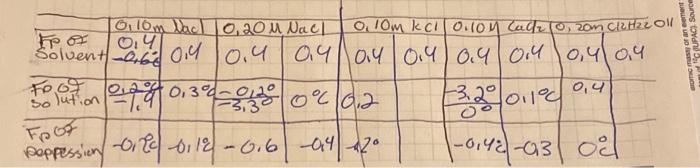 0.10m Nacl 0.20M Nacl 0.10m kcl 0.10M CaCl2 0.20m C12H22O11
Fp Of Solvent 0.4 -0.6° 0.4 0.4 0.4 0.4 0.4 0.4 0.4 0.4 0.4
Fp of Solution 0.2° -1.9 0.3° -0.2° -3.3° 0°C 0.2 -3.2° 0° 0.1°C 0.4
Fp of Deppession -0.2° -0.1° -0.6 -0.4 -.2° -0.4° -0.3 0°C
atomic masses of an element
(IUPAC). Source